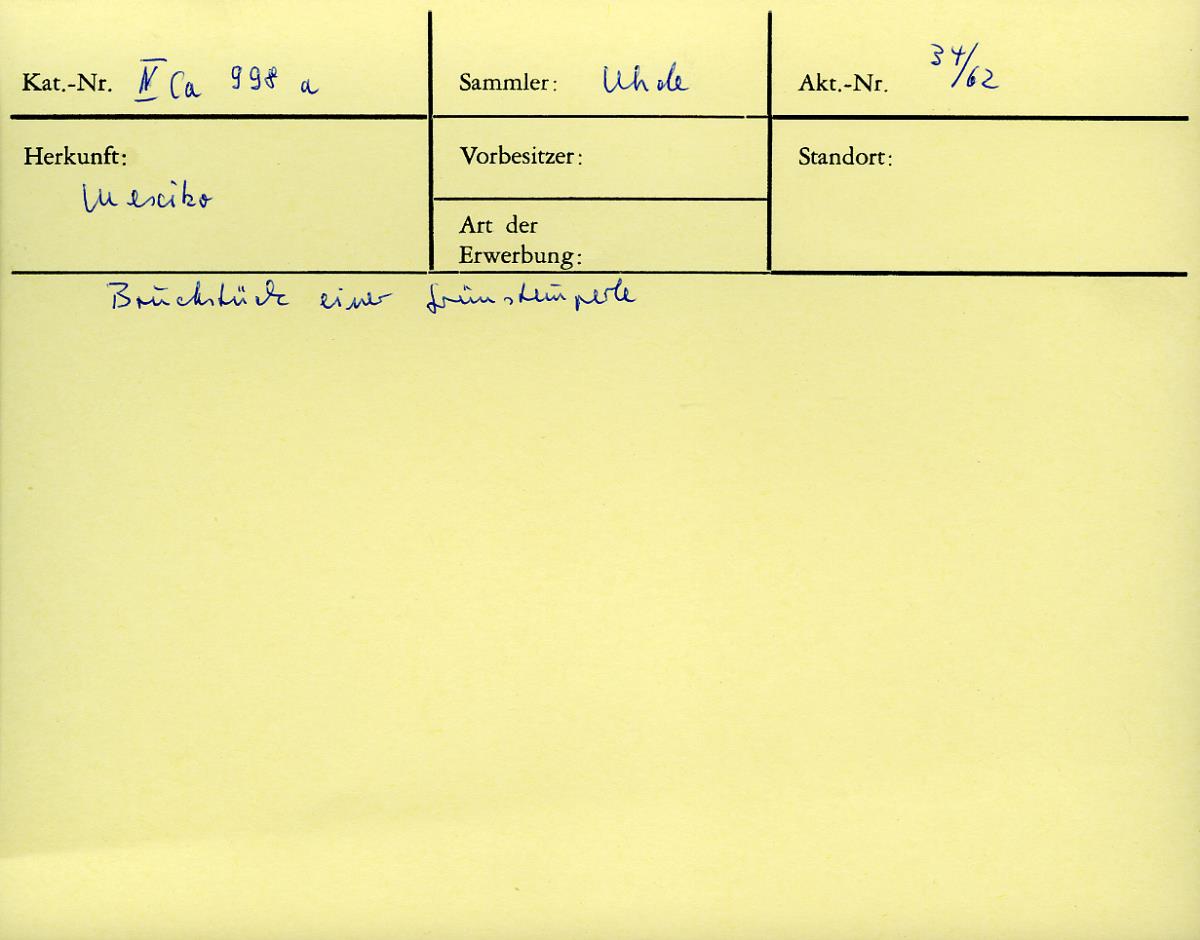 Kat.-Nr. IV Ca 998 a
Sammler: Uhde
Akt.-Nr. 34/62
Herkunft:
Mexiko
Vorbesitzer:
Art der
Erwerbung:
Standort:
Bruchstück einer Grünsteinperle